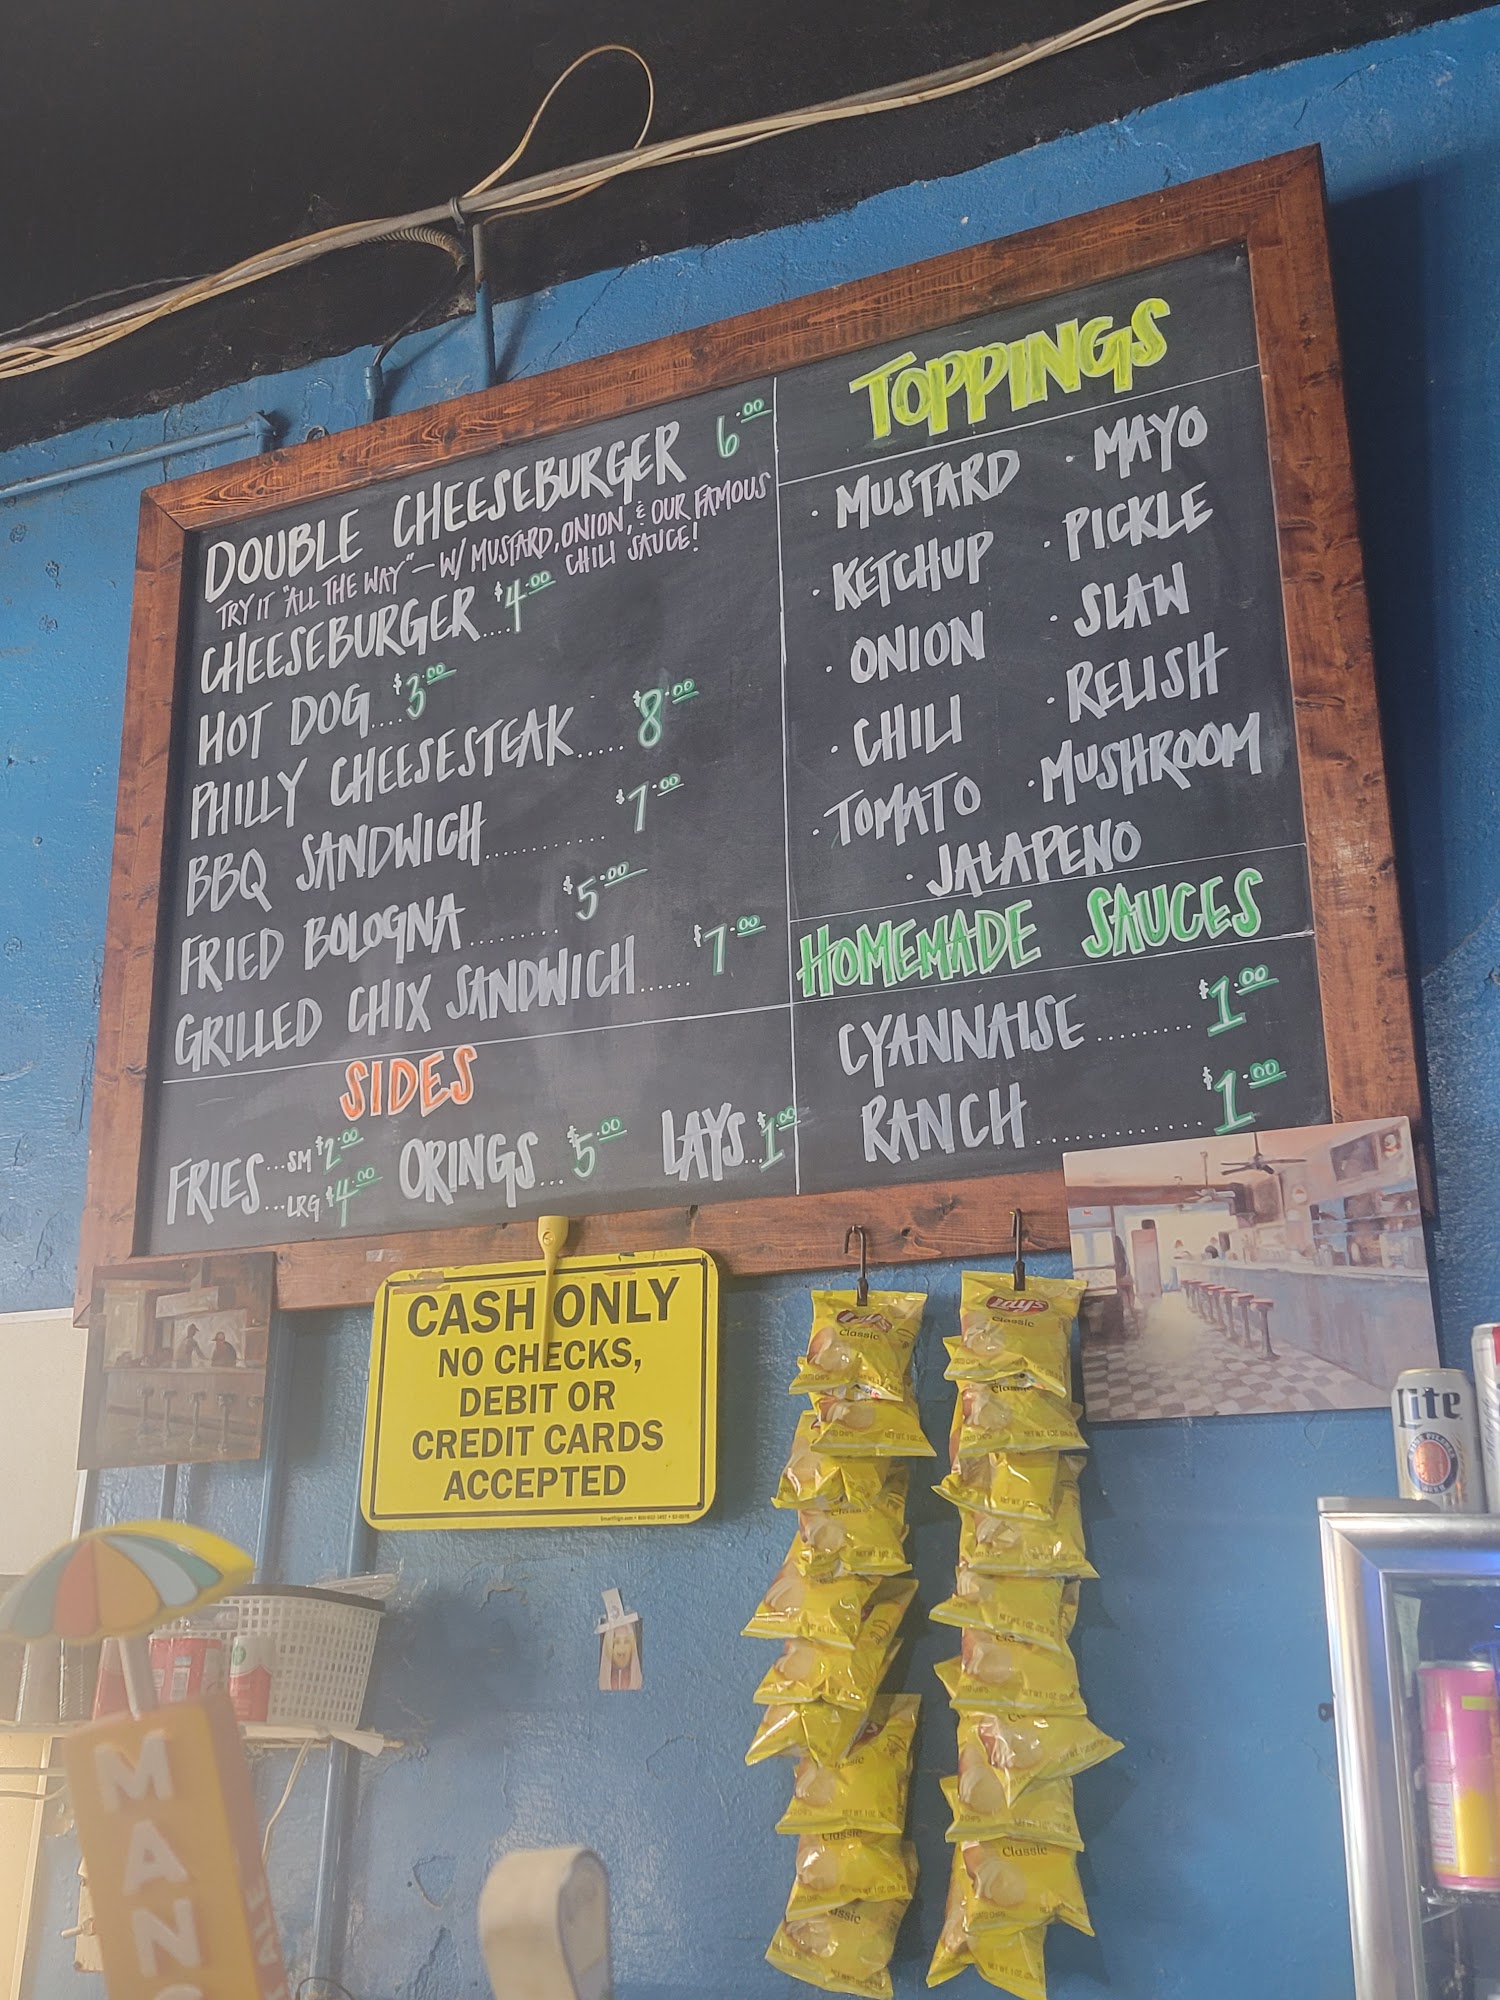 DOUBLE CHEESEBURGER 6.00
TRY IT "ALL THE WAY" — W/ MUSTARD, ONION, & OUR FAMOUS
CHILI SAUCE!
CHEESEBURGER....$4.00
HOT DOG....$3.00
PHILLY CHEESESTEAK..... $8.00
BBQ SANDWICH........... $7.00
FRIED BOLOGNA......... $5.00
GRILLED CHIX SANDWICH...... $7.00
SIDES
FRIES...SM $2.00
...LRG $4.00
ORINGS...$5.00
LAYS...$1.00
TOPPINGS
· MUSTARD · MAYO
· KETCHUP · PICKLE
· ONION · SLAW
· CHILI · RELISH
· TOMATO · MUSHROOM
· JALAPENO
HOMEMADE SAUCES
CYANNAISE....... $1.00
RANCH............ $1.00
CASH ONLY
NO CHECKS,
DEBIT OR
CREDIT CARDS
ACCEPTED
Lay's
Classic
Lay's
Classic
Classic
Classic
Classic
Lite
MANG
ALE